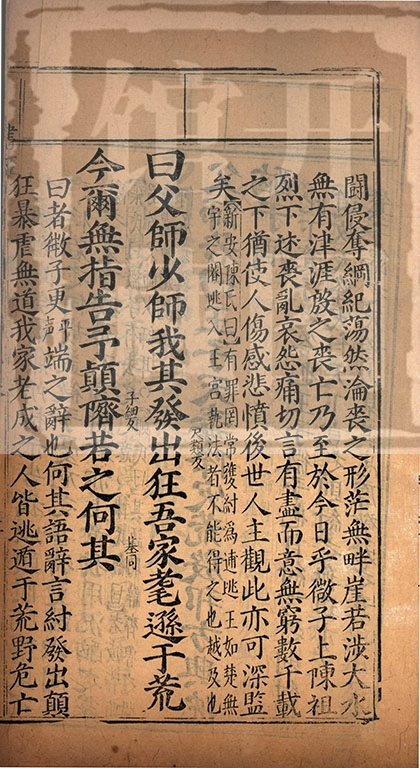 鬭侵奪綱紀蕩然淪喪之形茫無畔崖若涉大水
無有津涯放之喪亡乃至於今日乎微子上陳祖
烈下述喪亂哀怨痛切言有盡而意無窮數千載
之下猶使人傷感悲憤後世人主觀此亦可深監
矣
新安陳氏曰有罪罔常獲紂為逋逃王如楚無
宇之閽逃入王宮執法者不能得之也越及也
曰父師少師我其發出狂吾家耄遜于荒
莫報反
今爾無指告予顛隮若之何其
子細反
基同
曰者微子更平聲端之辭也何其語辭言紂發出顛
狂暴虐無道我家老成之人皆逃遁于荒野危亡